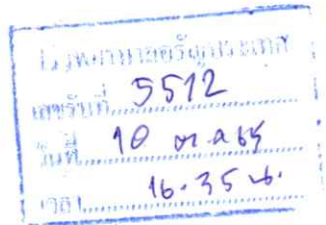 โรงพยาบาลอรัญประเทศ
เลขรับที่ 5512
วันที่ 10 ต.ค 65
เวลา 16.35 น.